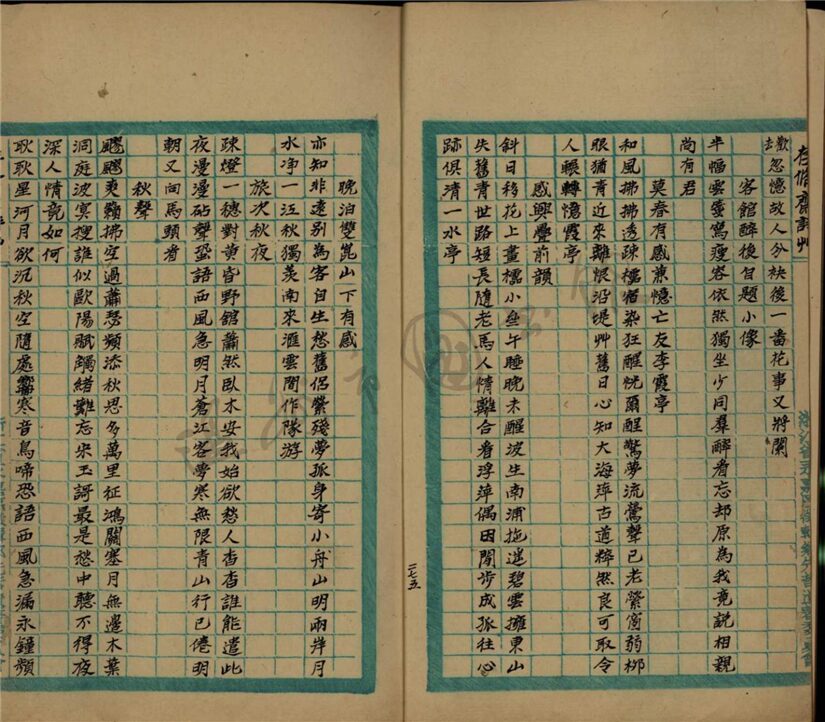 歡忽憶故人分袂後一番花事又將闌
客館醉後自題小像
半幅雲箋寫瘦容依然獨坐少同羣醉看忘却原為我竟說相親
尚有君
莫春有感兼憶亡友李霞亭
和風拂拂透疎櫺宿染狂醒恍爾醒驚夢流鶯聲已老縈窗弱柳
眼猶青近來離恨沿堤艸舊日心知大海萍古道粹然良可取令
人輾轉憶霞亭
感興疊前韻
斜日移花上畫櫺小坐午睡晚未醒波生南浦拖遥碧雲擁東山
失舊青世路短長隨老馬人情離合看浮萍偶因閒步成孤往心
跡俱清一水亭
二七五
晚泊雙崑山下有感
亦知非遠别為客自生愁舊侣縈殘夢孤身寄小舟山明兩岸月
水净一江秋獨羡南來滙雲間作隊游
旅次秋夜
疎燈一穗對黄昏野館蕭然臥未安我始欲愁人杳杳誰能遣此
夜漫漫砧聲蛩語西風急明月蒼江客夢寒無限青山行已倦明
朝又向馬頭看
秋聲
颼颼爽籟拂空過蕭瑟頻添秋思多萬里征鴻關塞月無邊木葉
洞庭波冥搜誰似歐陽賦觸緒難忘宋玉謌最是愁中聽不得夜
深人情竟如何
耿耿星河月欲沉秋空隨處響寒音鳥啼恐語西風急漏永鐘頻